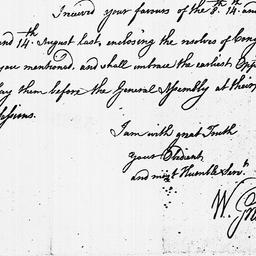 I received your favours of the 8th. 14. and
nd 14th August last, enclosing the resolves of Cong
you mentioned, and shall embrace the earliest Opp
lay them before the General Assembly at their
essions.
I am with great Truth
your Obedient
and most Humble Servt.
W.